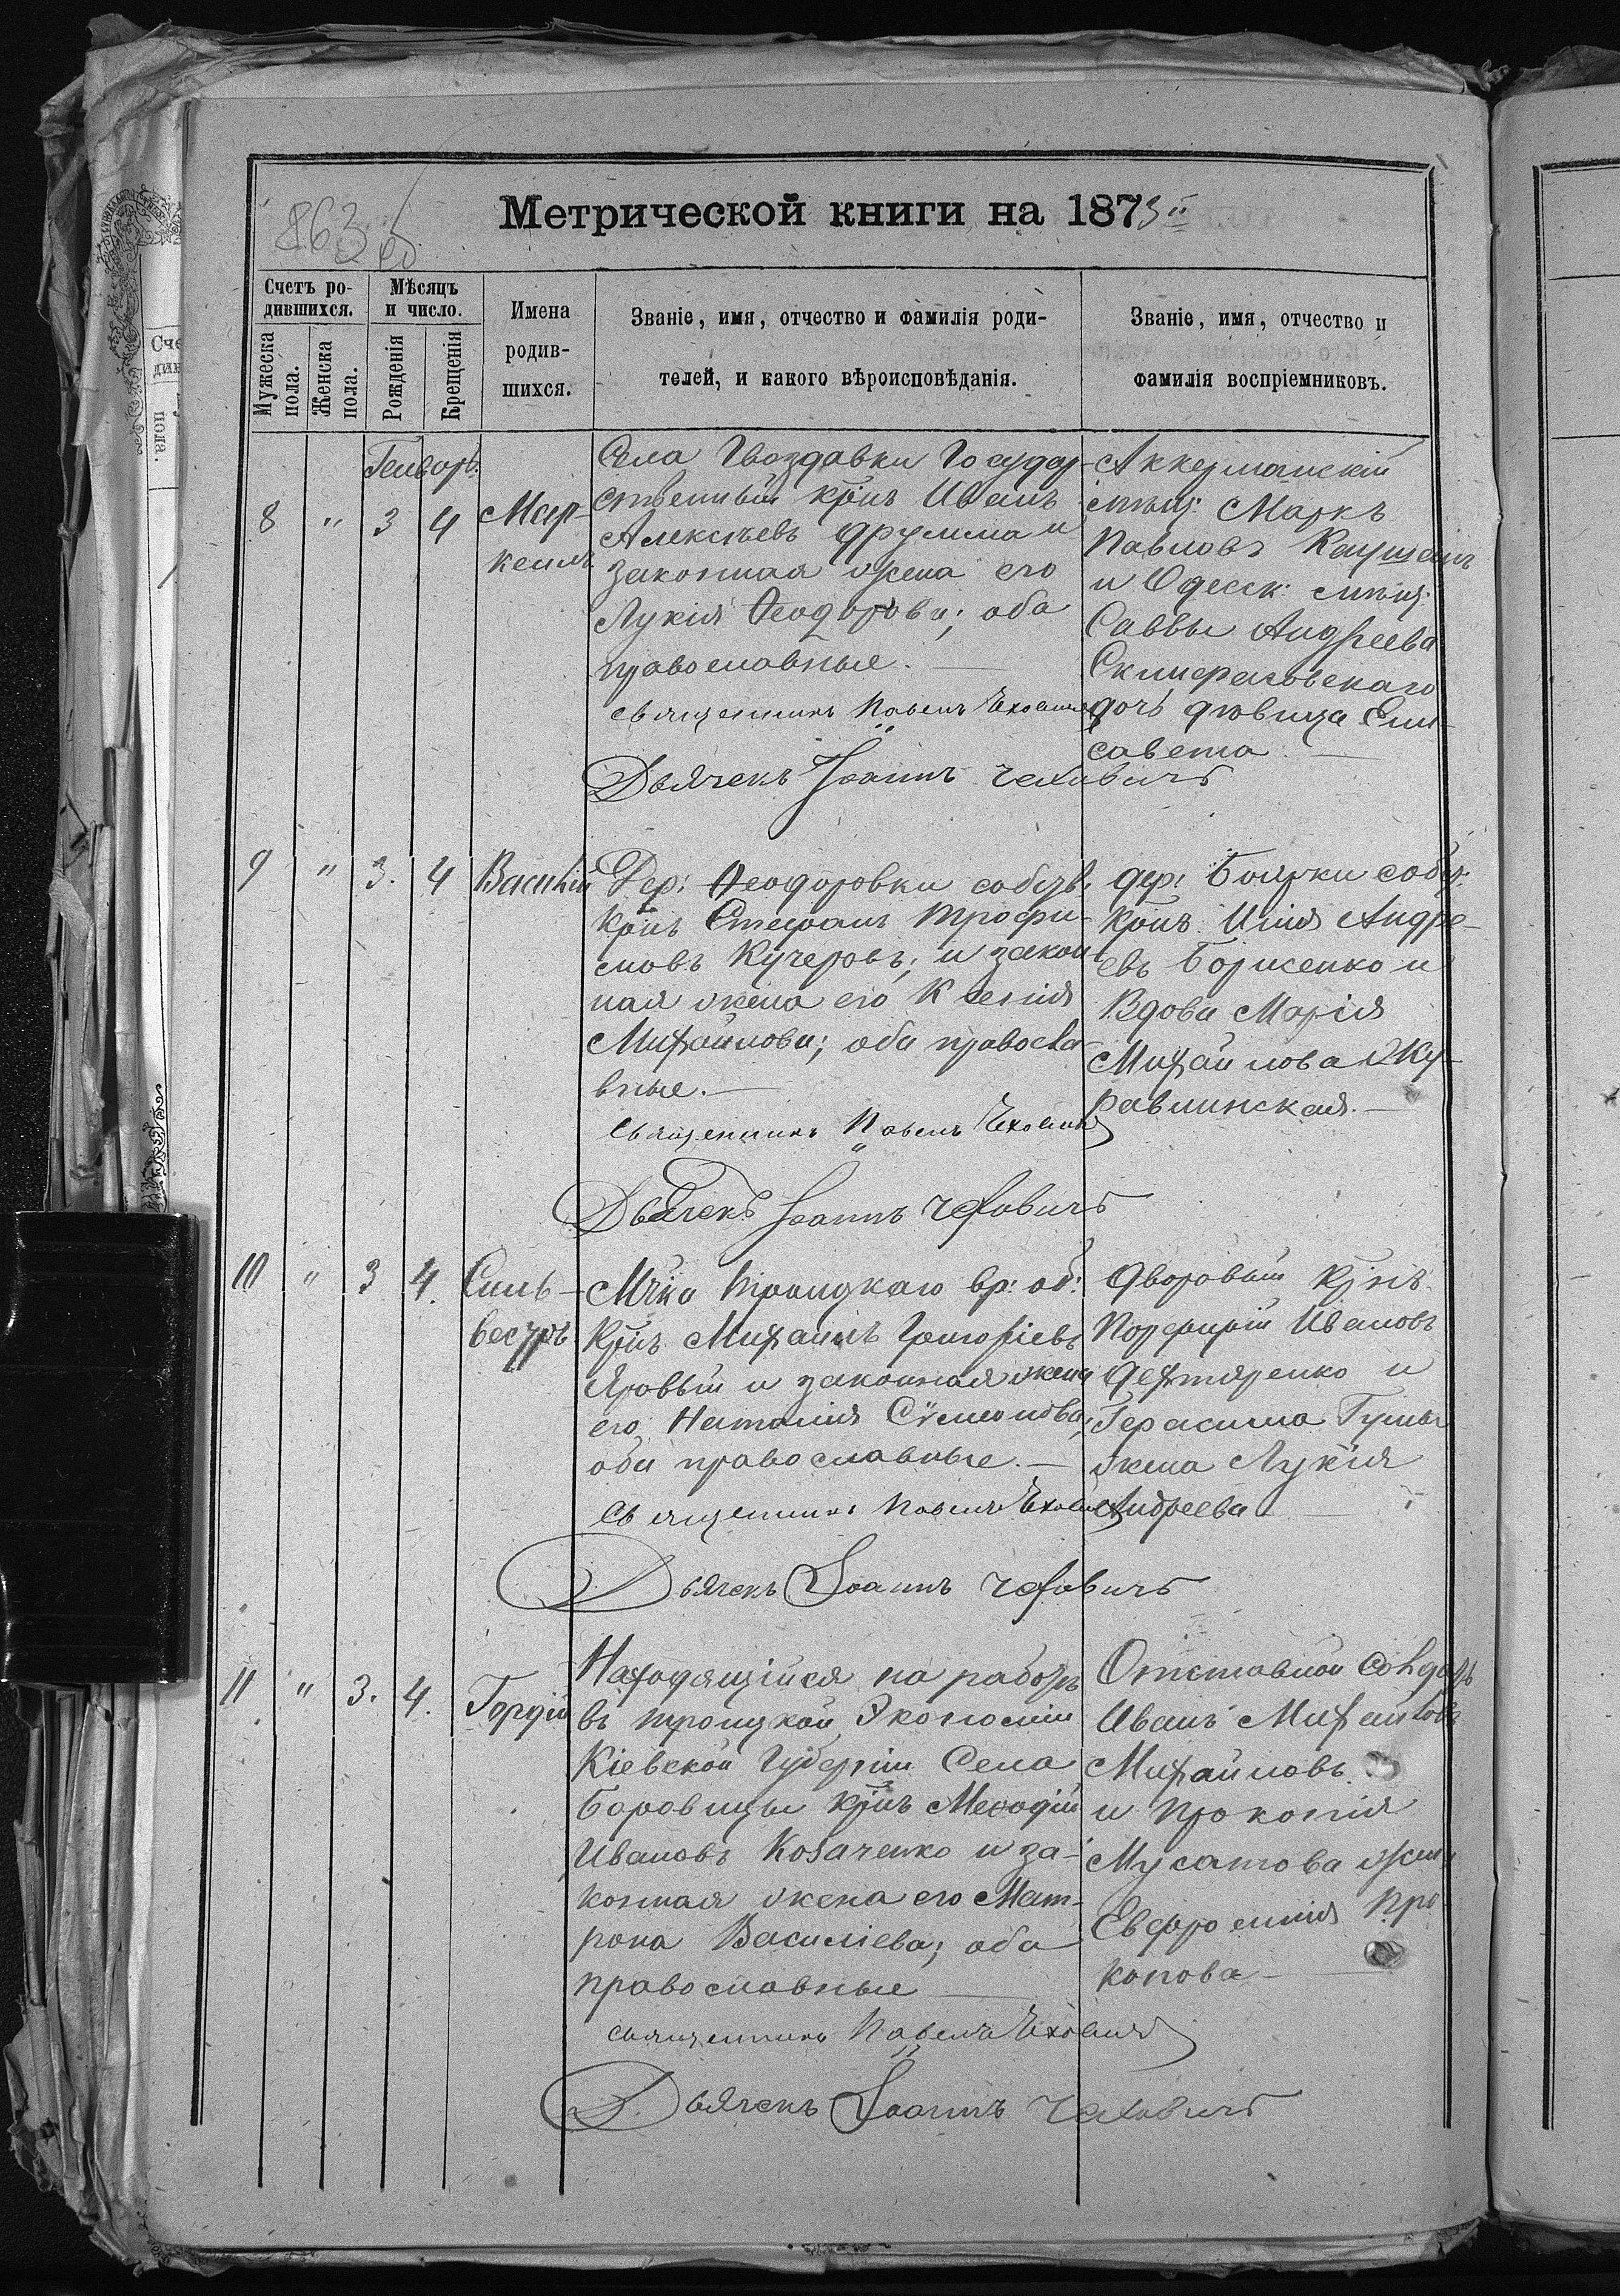 Метрической книги на 1873
863 об
Счетъ ро-
дившихся.
Мужеска
пола.
Женска
пола.
Мѣсяцъ
и число.
Рожденія
Крещенія
Имена
родив-
шихся.
Званіе, имя, отчество и фамилія роди-
телей, и какого вѣроисповѣданія.
Званіе, имя, отчество и
фамилія воспріемниковъ.
Генварь.
8 " 3 4
Мар-
келлъ
Села Гвоздавки Государ-
ственный кр̃нъ Иванъ
Алексѣевъ и
законная жена его
Лукія Ѳеодорова; оба
православные.
Священникъ Павелъ Чеховичъ
Дьячекъ Іоаннъ Чеховичъ
Аккерманскій
мѣщ: Маркъ
Павловъ
и Одесск: мѣщ:
Саввы Андреева
дочь дѣвица Ели-
савета
9 " 3. 4
Василій
Дер: Ѳеодоровки собств:
кр̃нъ Стефанъ Трофи-
мовъ Кучеровъ; и закон
ная жена его Ксенія
Михайлова; оба правосла
вные.
Священникъ Павелъ Чеховичъ
Дьячекъ Іоаннъ Чеховичъ
дер: Боярки собст:
кр̃нъ Илія Андре-
евъ Борисенко и
Вдова Марія
Михайлова Жу-
равлинская.
10 " 3 4.
Силь-
вестръ
М̃чка Троицкаго вр: об:
кр̃нъ Михаилъ Григоріевъ
Яровый и законная жена
его Наталія Сѵмеонова;
оба православные.
Священникъ Павелъ Чеховичъ
Дьячекъ Іоаннъ Чеховичъ
Дворовый кр̃нъ
Порфирій Ивановъ
Дехтяренко и
Герасима
жена Лукія
Андреева
11 " 3. 4.
Гордій
Находящійся на работѣ
въ Троицкой Экономіи
Кіевской Губерніи Села
Боровицы кр̃нъ Меѳодій
Ивановъ Козаченко и за-
конная жена его Мат-
рона Василіева; оба
православные
Священникъ Павелъ Чеховичъ
Дьячекъ Іоаннъ Чеховичъ
Отставной Солдатъ
Иванъ Михайловъ
Михайловъ
и Прокопія
Мусатова жена
Евфросинія Про
копова